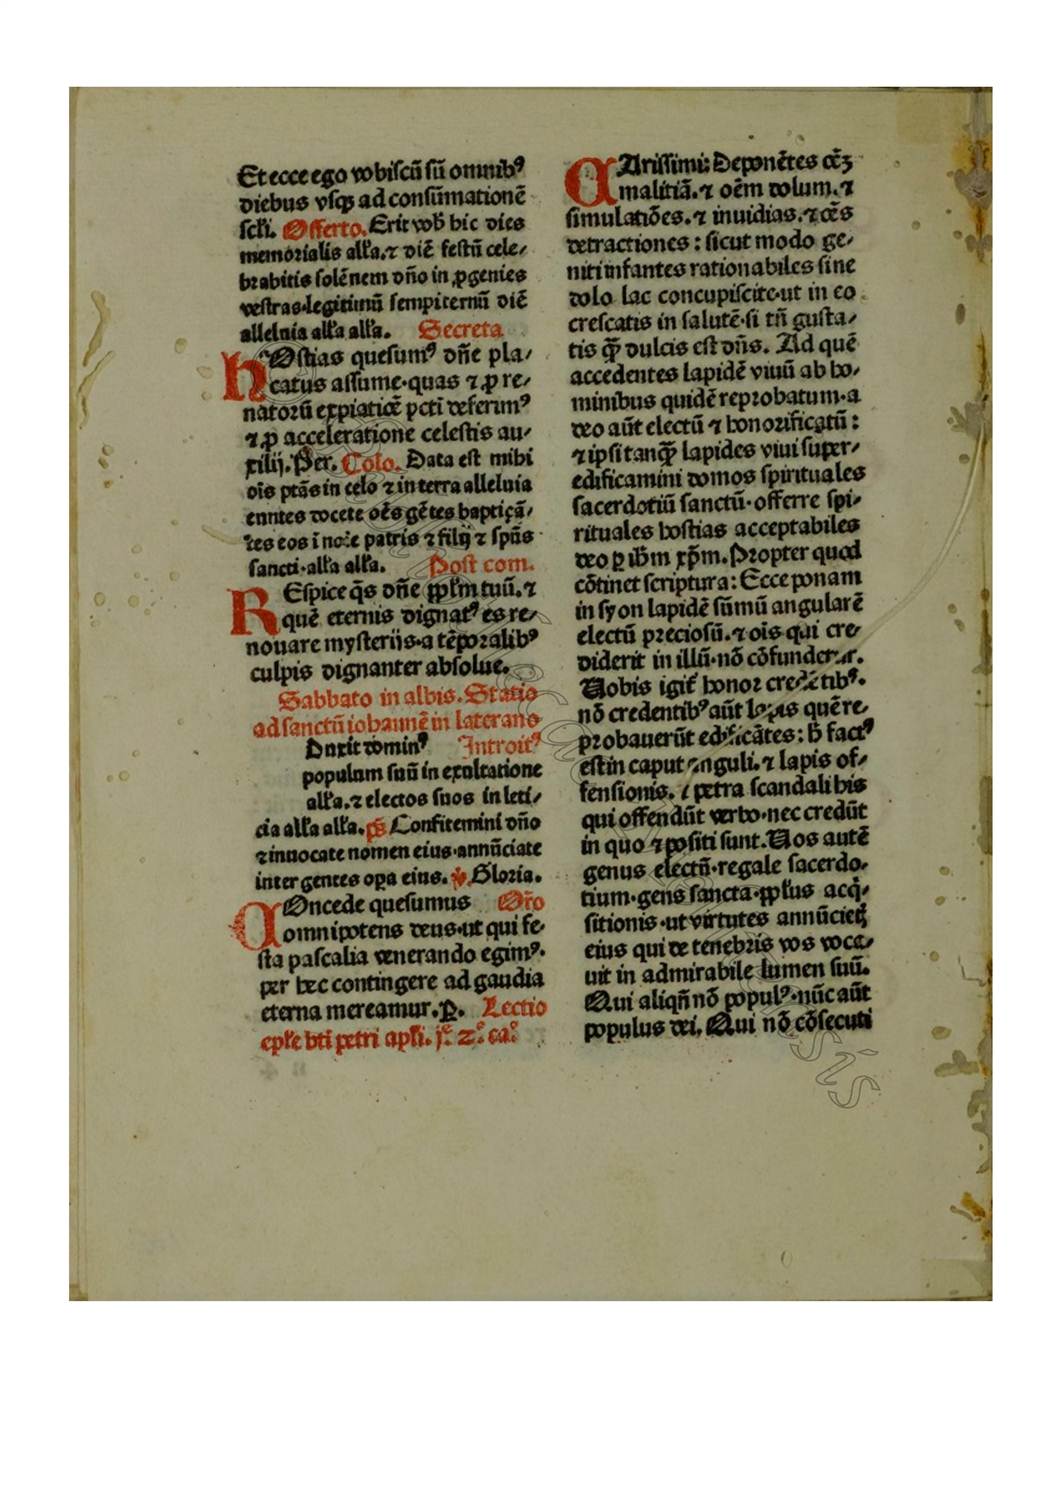 Et ecce ego vobiscũ sũ omnibꝰ
diebus vsqꝫ ad consũmationẽ
scł̃i. Offerto. Erit vob̃ hic dies
memorialis alł̃a. ⁊ diẽ festũ cele⸗
brabitis solẽnem dño in ꝓgenies
vestras·legitimũ sempiternũ diẽ
alleluia alł̃a alł̃a. Secreta
hOstias quesumꝰ dñe pla⸗
catus assume·quas ⁊ ꝓ re⸗
natorũ expiatiõe pcti deferimꝰ
⁊ ꝓ acceleratione celestis au⸗
xilij. Per. Cõio. Data est mihi
ois ptãs in celo ⁊ in terra alleluia
euntes docete oẽs gẽtes baptiçã⸗
tes eos ĩ noĩe patris ⁊ filij ⁊ spũs
sancti·alł̃a alł̃a. Post com.
REspice q̃s dñe ppł̃m tuũ. ⁊
quẽ eternis dignatꝰ es re⸗
nouare mysterijs·a tẽporalibꝰ
culpis dignanter absolue.
Sabbato in albis. Statio
ad sanctũ iohannẽ in laterano
Duxit dominꝰ Introitꝰ
populum suũ in exultatione
alł̃a. ⁊ electos suos in leti⸗
cia alł̃a alł̃a. p̃s Confitemini dño
⁊ inuocate nomen eius·annũciate
inter gentes oꝑa eius. ℣. Gloria.
COncede quesumus Or̃o
omnipotens deus·ut qui fe⸗
sta pascalia venerando egimꝰ·
per hec contingere ad gaudia
eterna mereamur. P̱. Lectio
epł̃e bt̃i petri apł̃i. jͤ. 2ͦ. caͦ.
CArissimi: Deponẽtes oẽꝫ
malitiã. ⁊ oẽm dolum. ⁊
simulatiões. ⁊ inuidias. ⁊ oẽs
detractiones: sicut modo ge⸗
niti infantes rationabiles sine
dolo lac concupiscite·ut in eo
crescatis in salutẽ·si tñ gusta⸗
tis qꝫ̃ dulcis est dñs. Ad quẽ
accedentes lapidẽ viuũ ab ho⸗
minibus quidẽ reprobatum·a
deo aũt electũ ⁊ honorificatũ:
⁊ ipsi tanqꝫ̃ lapides viui super⸗
edificamini domos spirituales
sacerdotiũ sanctũ·offerre spi⸗
rituales hostias acceptabiles
deo ꝑ ih̃m xp̃m. Propter quod
cõtinet scriptura: Ecce ponam
in syon lapidẽ sũmũ angularẽ
electũ preciosũ. ⁊ ois qui cre⸗
diderit in illũ·nõ cõfundetur.
Uobis igit̃ honor credẽtibꝰ.
nõ credentibꝰ aũt lapis quẽ re⸗
probauerũt edificãtes: h̃ factꝰ
est in caput anguli. ⁊ lapis of⸗
fensionis. ⁊ petra scandali his
qui offendũt verbo·nec credũt
in quo ⁊ positi sunt. Uos autẽ
genus electũ·regale sacerdo⸗
tium·gens sancta·ppł̃us acq̃⸗
sitionis·ut virtutes annũcietꝭ
eius qui de tenebris vos voca⸗
uit in admirabile lumen suũ.
Qui aliqñ nõ populꝰ·nũc aũt
populus dei. Qui nõ cõsecuti